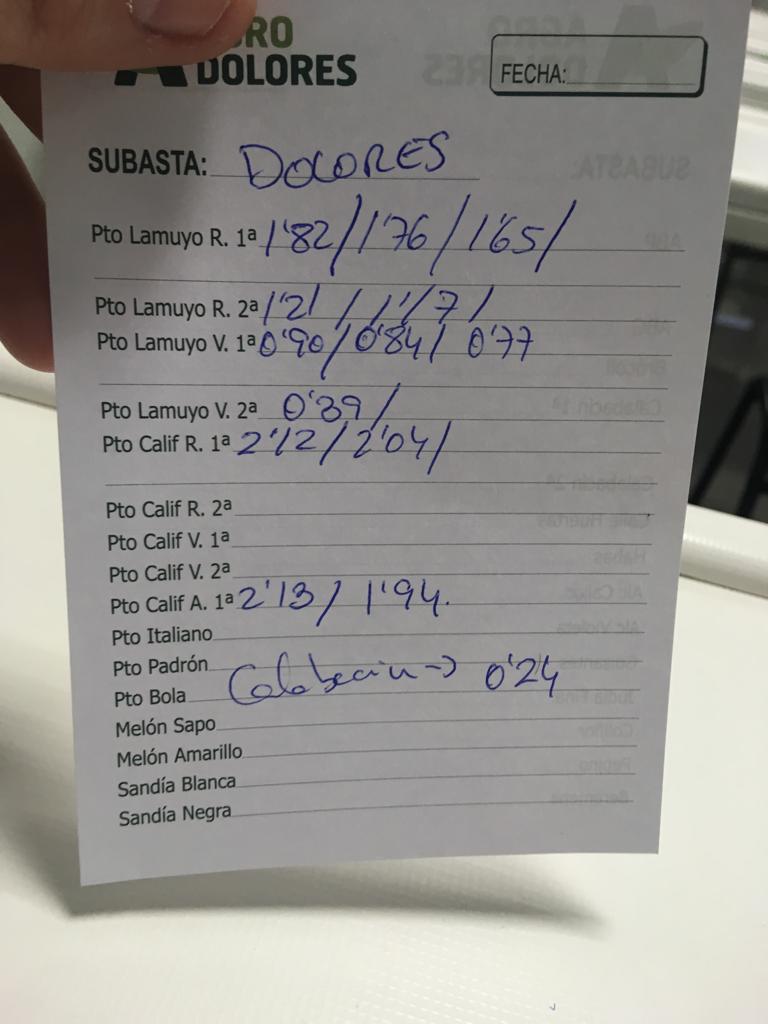 GRO
DOLORES
FECHA:
SUBASTA: DOLORES
Pto Lamuyo R. 1ª 1'82/1'76/1'65/
Pto Lamuyo R. 2ª 1'21/1'17/
Pto Lamuyo V. 1ª 0'90/0'84/0'77
Pto Lamuyo V. 2ª 0'39/
Pto Calif R. 1ª 2'12/2'04/
Pto Calif R. 2ª
Pto Calif V. 1ª
Pto Calif V. 2ª
Pto Calif A. 1ª 2'13/1'94.
Pto Italiano
Pto Padrón
Pto Bola Calabacin -> 0'24
Melón Sapo
Melón Amarillo
Sandía Blanca
Sandía Negra